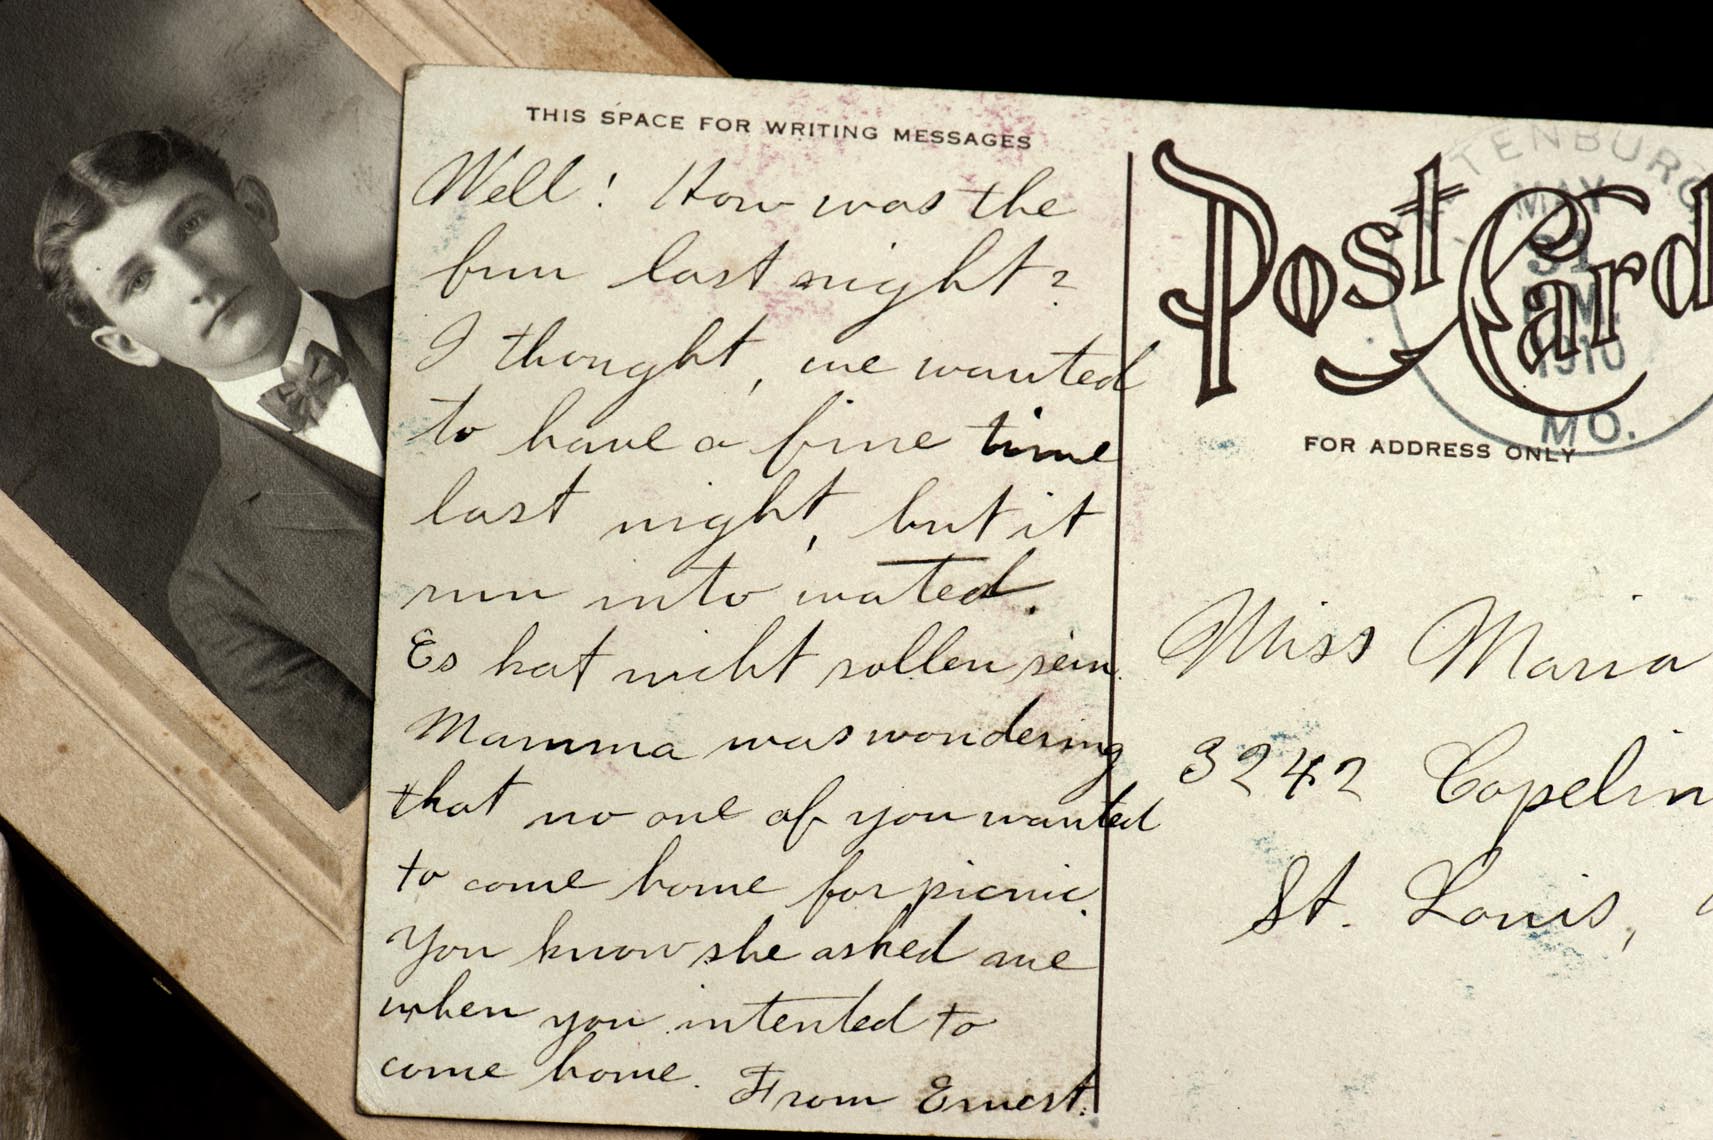 THIS SPACE FOR WRITING MESSAGES
Well! How was the
fun last night?
I thought, we wanted
to have a fine time
last night, but it
run into wated.
Es hat nicht sollen sein.
Mamma was wondering
that no one of you wanted
to come home for picnic.
You know she asked me
when you intented to
come home.
From Ernest.
Post Card
TENBURG
MAY
31
1910
MO.
FOR ADDRESS ONLY
Miss Maria
3242 Copelin
St. Louis,